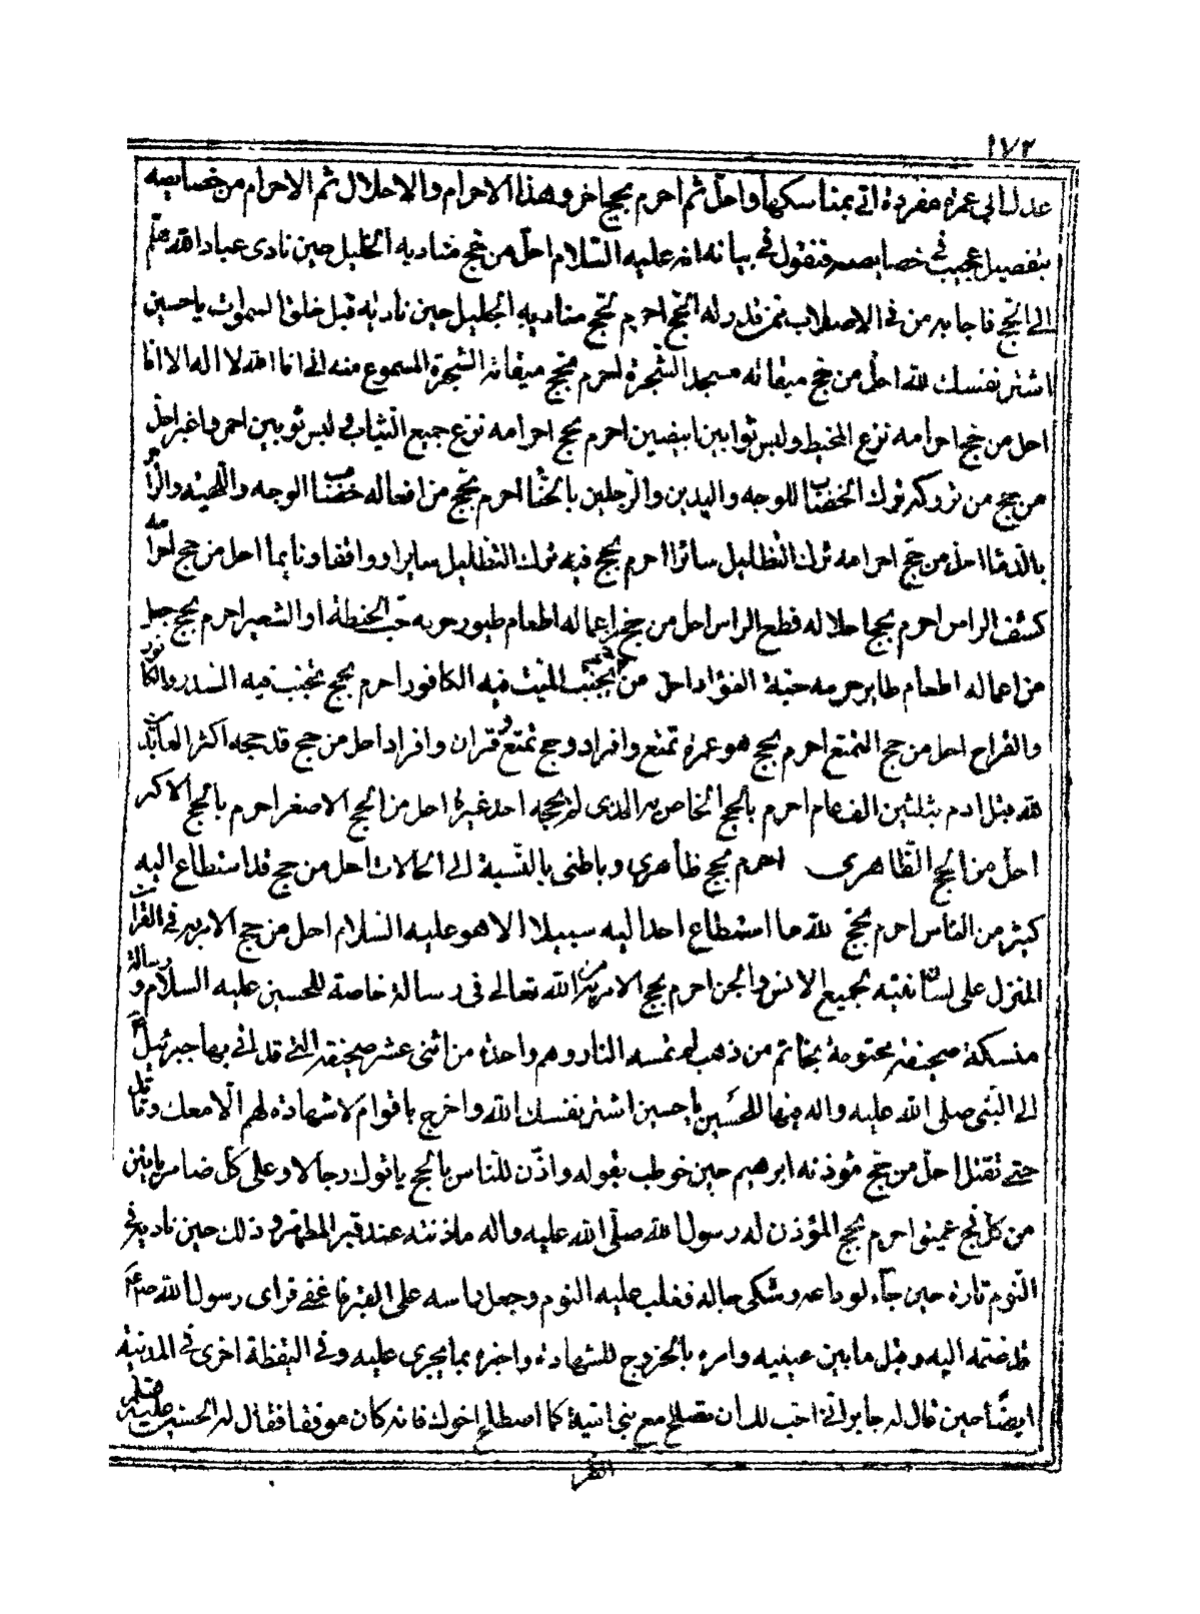 ١٧٢
عدل الى عمرة مفردة اتى بمناسكها واحل ثم احرم بحج اخر وهذا الاحرام والاحلال ثم الاحرام من خصايصه
بتفصيل عجيب في خصايصه فنقول في بيانه انه عليه السلام احل من حج مناديه الخليل حين نادى عباد الله هلم
الى الحج فاجابه من في الاصلاب ممن قدر له الحج احرم بحج مناديه الجليل حين ناديه قبل خلق السموات يا حسين
اشتر نفسك لله احل من حج ميقاته مسجد الشجرة احرم بحج ميقاته الشجرة المسموع منه انى انا الله لا اله الا انا
احل من حج احرامه نزع المخيط ولبس ثوابين ابيضين احرم بحج احرامه نزع جميع الثياب ولبس ثوبين احمر واغبر احل
من حج من تروكه ترك الخضاب للوجه واليدين والرجلين بالحنا احرم بحج من افعاله خضاب الوجه واللحية والراس
بالدماء احل من حج احرامه ترك التظليل سائرا احرم بحج فيه ترك التظليل سايرا وواقفا ونايما احل من حج احرامه
كشف الراس احرم بحج احلاله قطع الراس احل من حج اعماله اطعام طيور حرمه حب الحنطة او الشعير احرم بحج جعل
من اعماله اطعام طاير حرمه حبة الفؤاد احل من حج يجنب الميت فيه الكافور احرم بحج تجنب فيه السدر والكافور
والقراح احل من حج التمتع احرم بحج هو عمرة تمتع وافراد وحج تمتع وقران وافراد احل من حج قد حجه اكثر العابدين
لله قبل ادم بثلثين الف عام احرم بالحج الخاص به الذى لم يحجه احد غيره احل من الحج الاصغر احرم بالحج الاكبر
احل من الحج الظاهرى احرم بحج ظاهرى وباطنى بالنسبة الى الحالات احل من حج قد استطاع اليه
كثير من الناس احرم بحج لله ما استطاع احد اليه سبيلا الا هو عليه السلام احل من حج الامر به في القرآن
المنزل على لسان نبيه لجميع الانس والجن احرم بحج الامر به من الله تعالى في رسالة خاصة للحسين عليه السلام ورسالة
منسكة صحيفة مختومة بخاتم من ذهب لم تمسه النار وهو واحدة من اثنى عشر صحيفة التى قد اتى بها جبرئيل
الى النبى صلى الله عليه واله فيها للحسين يا حسين اشتر نفسك لله واخرج باقوام لا شهادة لهم الا معك وقاتل
حتى تقتل احل من حج مؤذنه ابرهيم حين خوطب بقوله واذن للناس بالحج ياتوك رجالا وعلى كل ضامر ياتين
من كل فج عميق احرم بحج المؤذن له رسول الله صلى الله عليه واله مأذنته عند قبر المطهر وذلك حين ناديه في
النوم تارة حين جاء لوداعه وشكى حاله فغلب عليه النوم وجعل راسه على القبر فاغفى فراى رسول الله
قد ضمه اليه وقبل ما بين عينيه وامره بالخروج للشهادة واخبره بما يجرى عليه وفي اليقظة اخرى في المدينة
ايضا حين قال له جابر انى احب لك ان تصلح مع بنى امية كما اصطلح اخوك فانه كان موفقا فقال له الحسين عليه
انظر